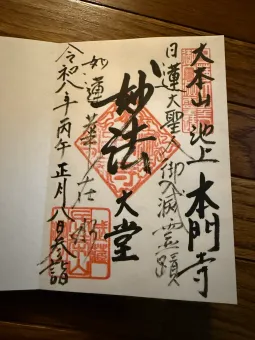 大本山 池上 本門寺
日蓮大聖人 御入滅霊蹟
妙法 大堂
妙蓮華在
令和八年丙午正月八日参詣